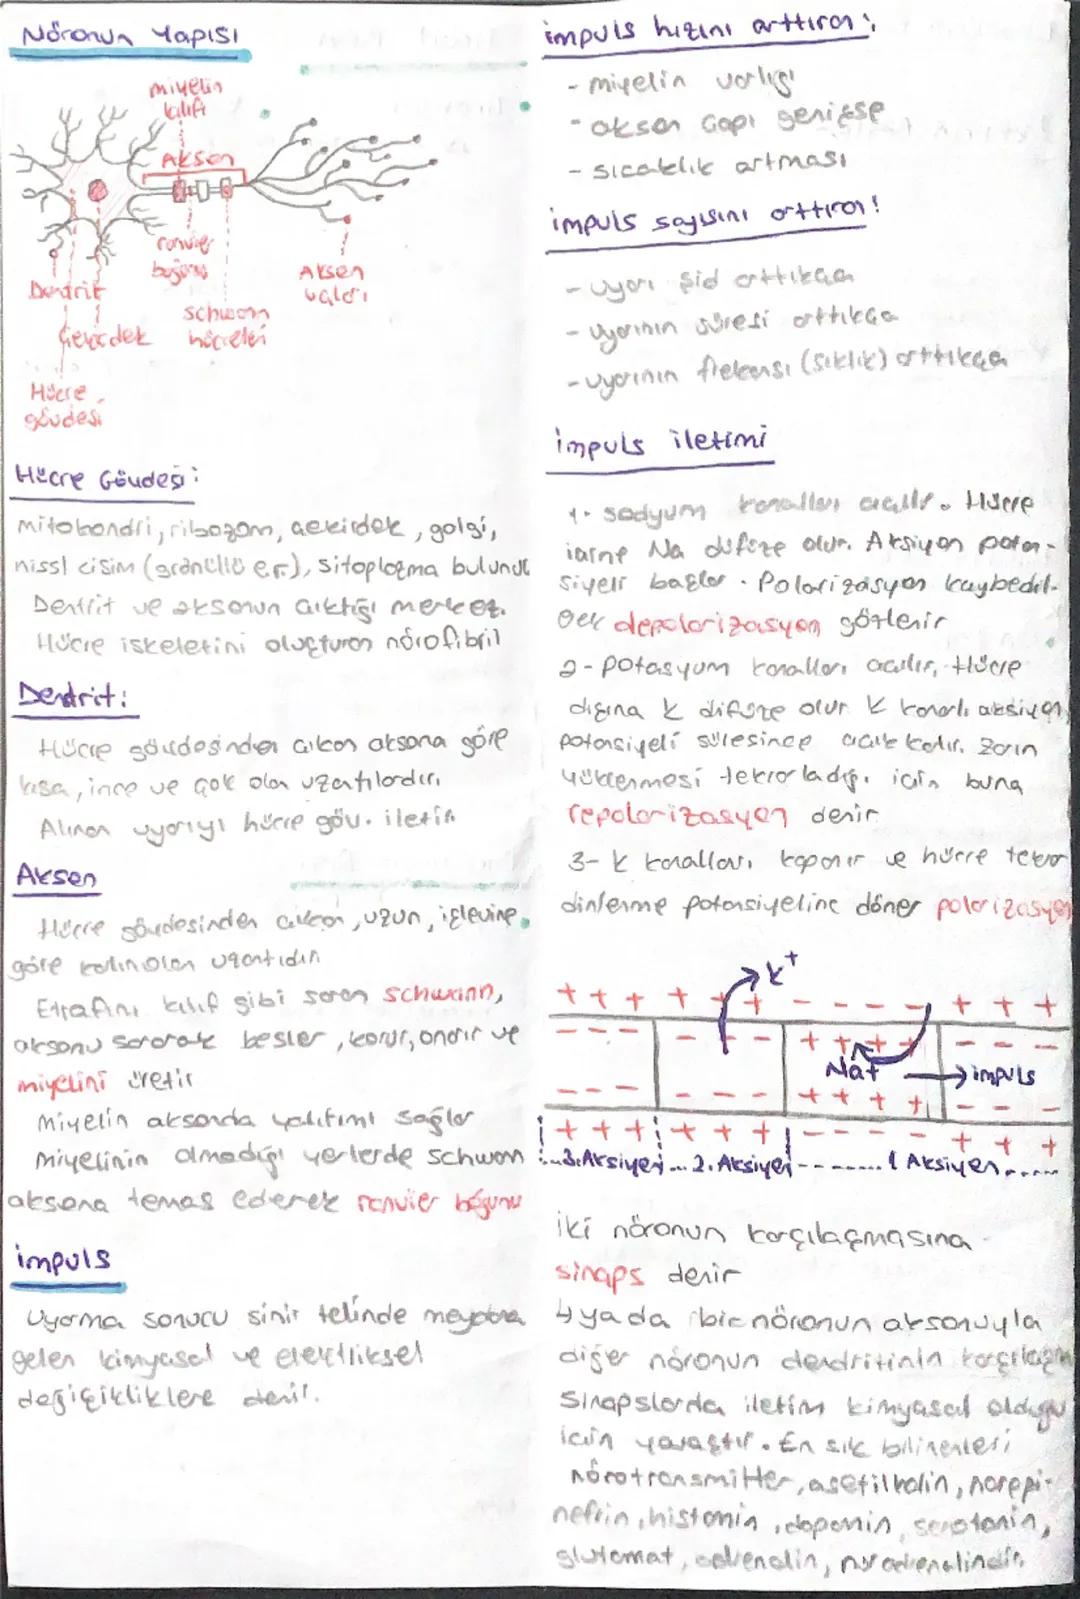 Nöronun Yapısı
miyelin
kılıfı
Akson
ranvier
boğumu
Akson
Dendrit
schwann
Çekirdek
hücreleri
Hücre
gövdesi
Hücre Gövdesi:
mitokondri, ribozom, çekirdek, golgi,
nissl cisim (granüllü er), sitoplazma bulunur
Dentrit ve aksonun çıktığı merkez.
Hücre iskeletini oluşturan nörofibril
Dendrit:
Hücre gövdesinden çıkan aksona göre
kısa, ince ve çok olan uzantılardır.
Alınan uyarıyı hücre göv. iletir
Akson
Hücre gövdesinden çıkan, uzun, işlevine
göre kalın olan uzantıdır
Etrafını kılıf gibi saran schwann,
aksonu sararak besler, korur, onarır ve
miyelini üretir
Miyelin aksonda yalıtımı sağlar
Miyelinin olmadığı yerlerde schwan
aksona temas ederek ranvier boğumu
impuls
Uyarma sonucu sinir telinde meydana
gelen kimyasal ve elektiriksel
değişikliklere denir.
impuls hızını arttıran:
- miyelin varlığı
- akson çapı genişse
- sıcaklık artması
impuls sayısını arttıran:
- uyarı şid arttıkça
- uyarının süresi arttıkça
- uyarının frekansı (sıklık) arttıkça
impuls iletimi
1- sodyum kanalları açılır. Hücre
içine Na difüze olur. Aksiyon potan-
siyeli başlar. Polarizasyon kaybedil-
erek depolarizasyon gözlenir
2- Potasyum kanalları açılır, Hücre
dışına K difüze olur. K kanalı aksiyon
potansiyeli süresince açık kalır. Zarın
yüklenmesi tekrarladığı için buna
repolarizasyon denir
3- K kanalları kapanır ve hücre tekrar
dinlenme potansiyeline döner polarizasyon
K+
+ + + + + + - - - - + + +
- - - - - - + + + + - - -
Na+ → impuls
- - - - - - + + + + - - -
+ + + + + + - - - - + + +
3. Aksiyon ... 2. Aksiyon ------- 1 Aksiyon
iki nöronun karşılaşmasına
sinaps denir
↳ ya da bir nöronun aksonuyla
diğer nöronun dendritinin karşılaşm
Sinapslarda iletim kimyasal olduğu
için yavaştır. En sık bilinenleri
nörotransmitter, asetilkolin, norepi-
nefrin, histamin, dopamin, serotonin,
glutamat, adrenalin, noradrenalindir.